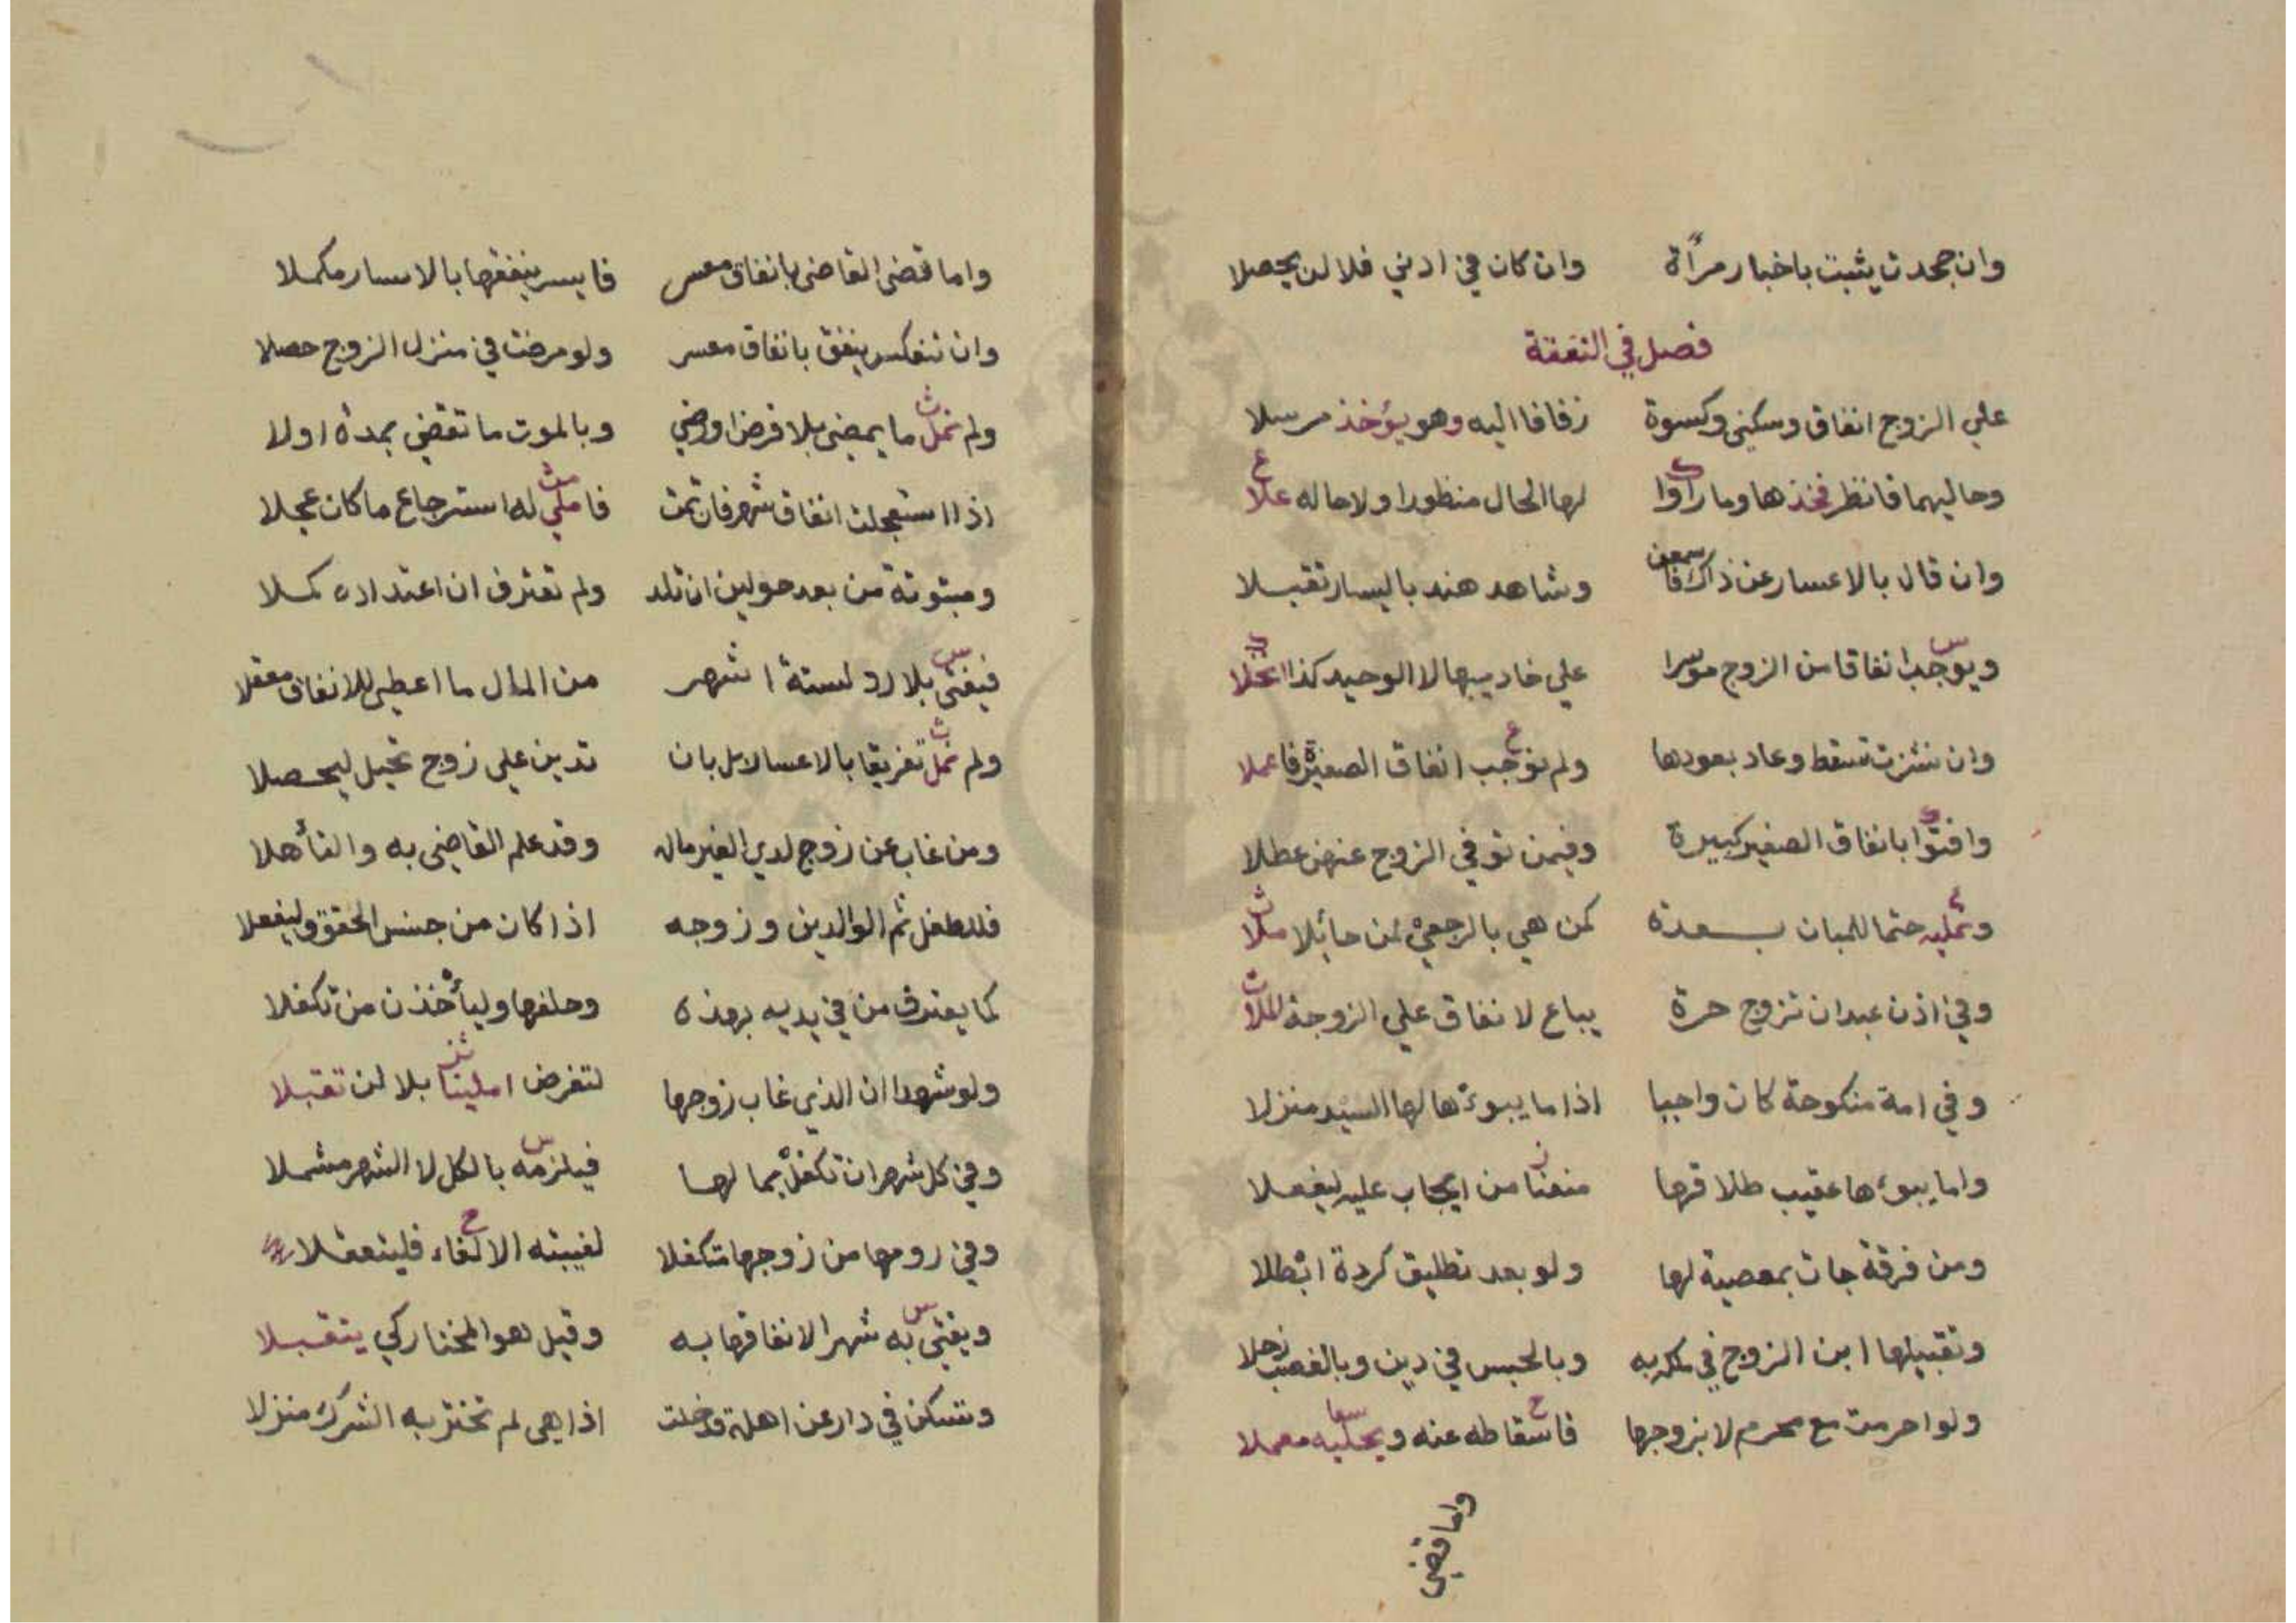 وان جحدت يثبت باخبار مرأة وان كان في ادني فلا لن يحصلا
فصل في النفقة
علي الزوج انفاق وسكني وكسوة زفافا اليه وهو يؤخذ مرسلا
وحاليهما فانظر فخذها وما راوا لها الحال منظورا ولا حاله علا
وان قال بالاعسار عن ذاك وشاهد هند باليسار تقبلا
ويوجب انفاقا من الزوج موسرا علي خادميها لا الوحيد كذا
وان نشزت تسقط وعاد بعودها ولم نوجب انفاق الصغيرة فاعملا
وافتوا بانفاق الصغير كبيرة وفيمن توفي الزوج عنهن عطلا
وتمليه حتما للمبان بعدة كمن هي بالرجعي لمن حائلا ملا
وفي اذن عبد ان تزوج حرة يباع لانفاق علي الزوجة
وفي امة منكوحة كان واجبا اذا ما يبوءها لها السيد منزلا
واما يبوءها عقيب طلاقها منعنا من ايجاب عليه ليفعلا
ومن فرقة جات بمعصية لها ولو بعد تطليق كردة ابطلا
وتقبيلها ابن الزوج في وبالحبس في دين وبالغصب
ولو احرمت مع محرم لا بزوجها فاسقاطه عنه معملا
واما قضي
واما قضى القاضى بانفاق معسر فايسر ينفقها بالايسار مكملا
وان تنعكس ينفق بانفاق معسر ولو مرضت في منزل الزوج حصلا
ولم نمل ما يمضى بلا فرض او رضي وبالموت ما تقضي بمدة اولا
اذا استعجلت انفاق شهر فان تمت فاملي له استرجاع ما كان عجلا
ومبتوتة من بعد حولين ان تلد ولم تعترف ان اعتداده كملا
فيفتى بلا رد لستة اشهر من المال ما اعطى للانفاق معقلا
ولم نمل تفريقا بالاعسار بل بان تدين علي زوج تحيل ليحصلا
ومن غاب عن زوج لدي الغير ماله وقد علم القاضى به والتأهلا
فللطفل ثم الوالدين وزوجه اذا كان من جنس الحقوق وليفعلا
كما يعترف من في يديه بهذه وحلفها وليأخذن من تكفلا
ولو شهدا ان الذي غاب زوجها لتفرض املينا بلا لن تقبلا
وفي كل شهر ان تكفل بما لها فيلزمه بالكل لا الشهر مشملا
وفي رومها من زوجها متكفلا لغيبته الالغاء فليتعقلا
ويفتى به شهرا لانفاقها به وقيل هو المختار كي يتقبلا
وتسكن في دار عن اهله قد خلت اذا هى لم تختر به الشرك منزلا